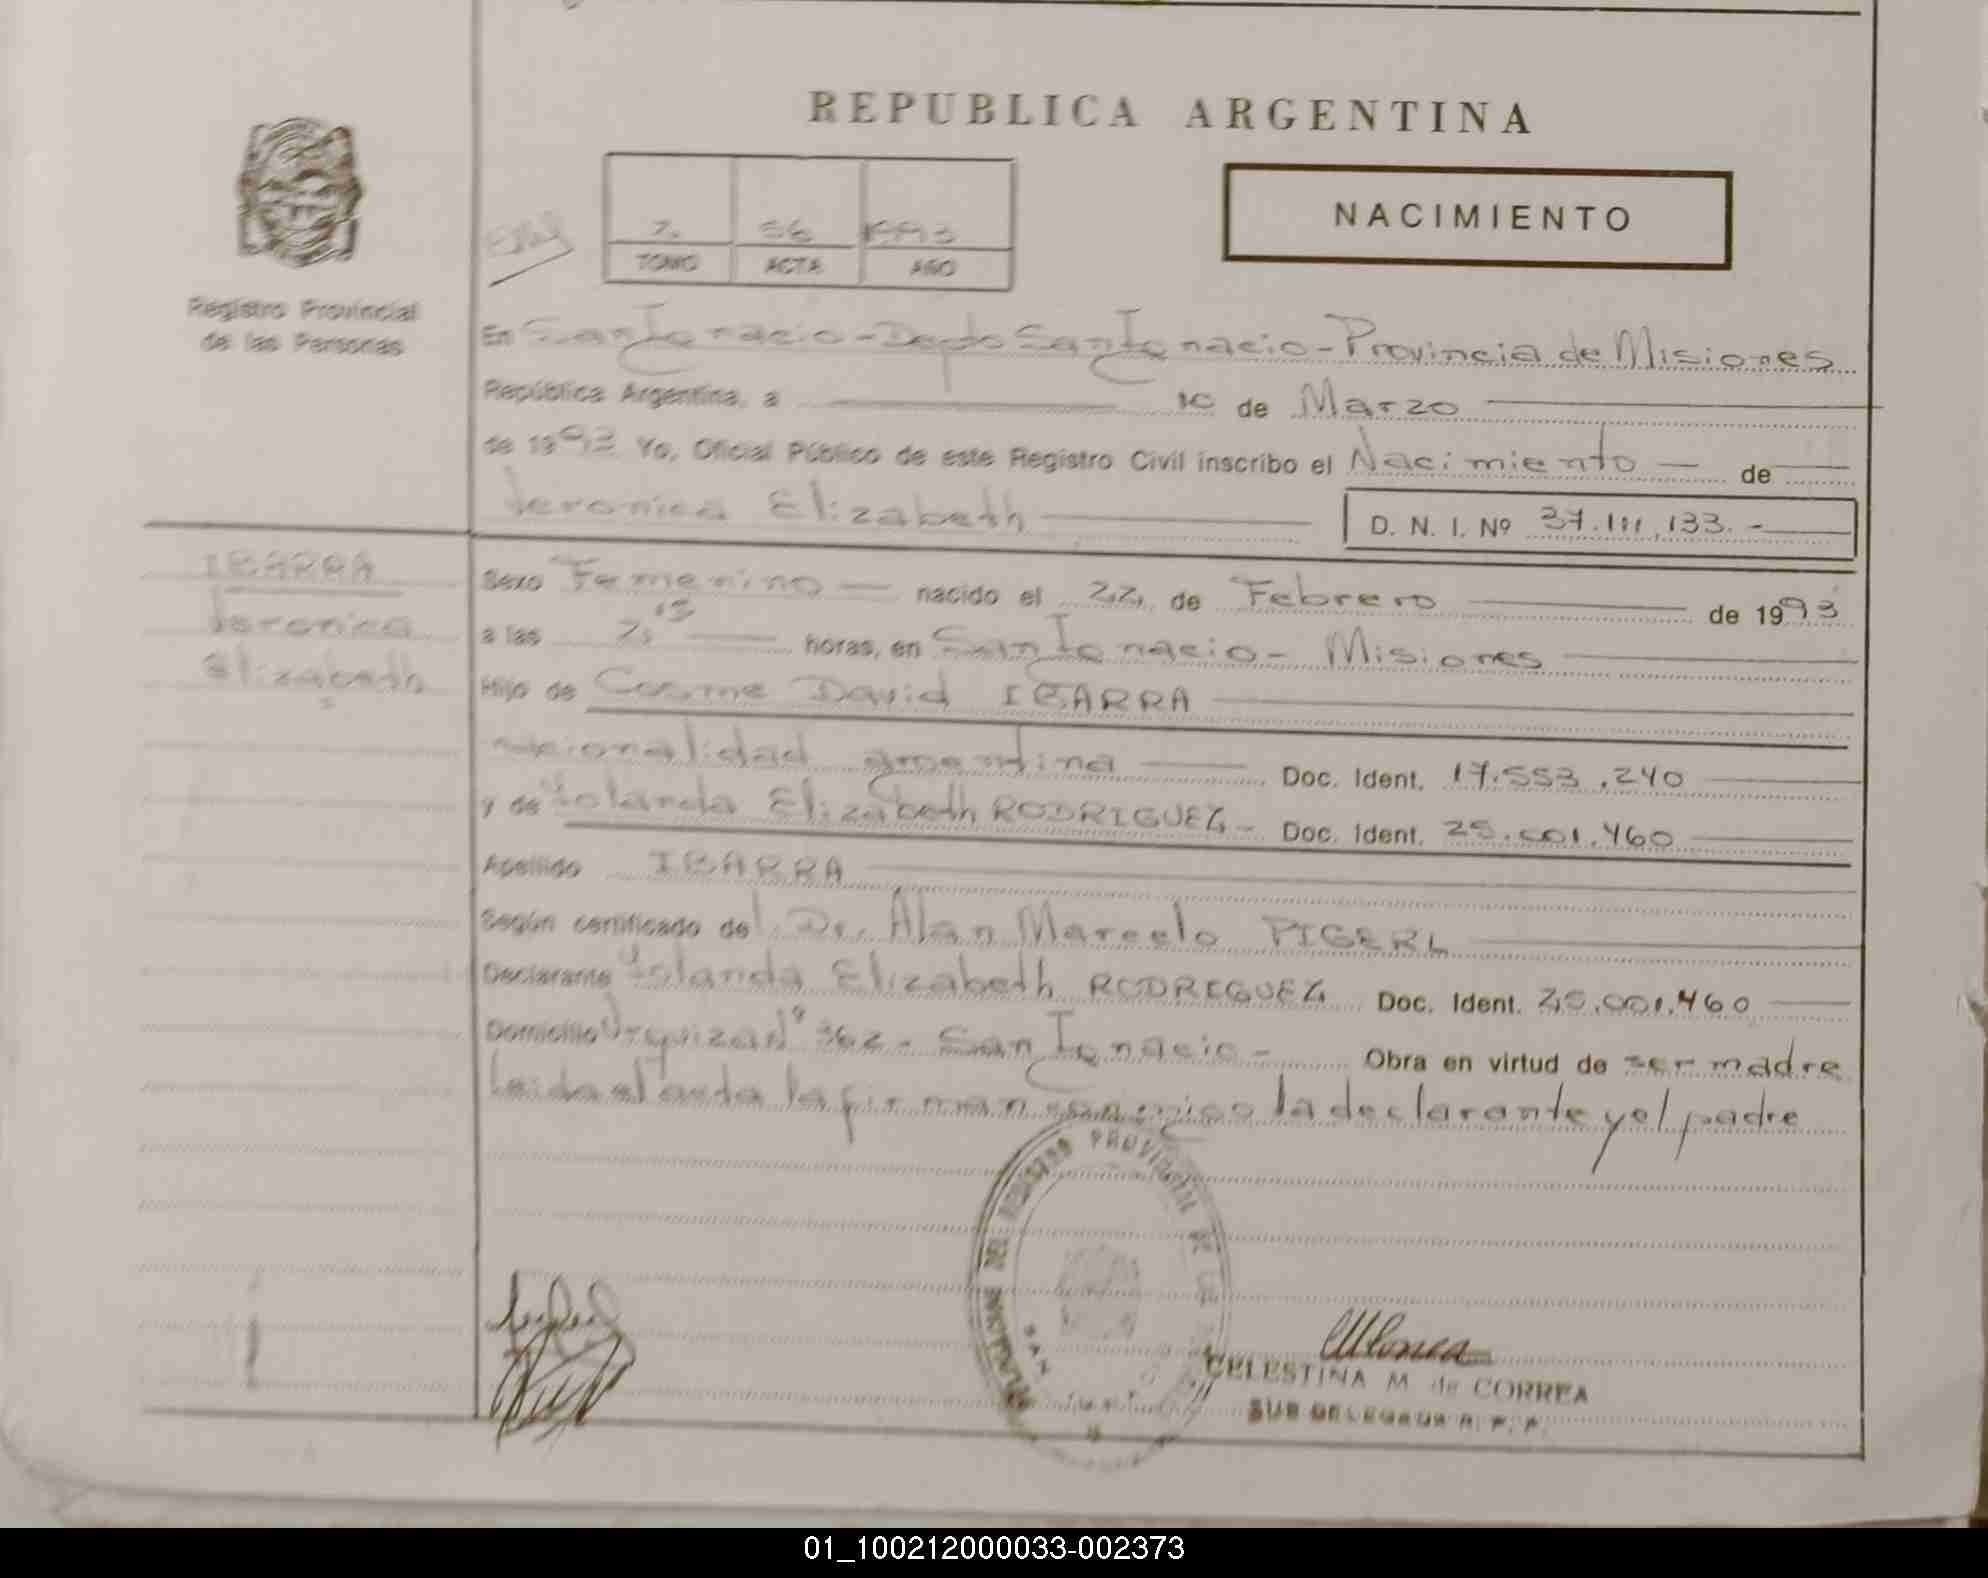 REPUBLICA ARGENTINA
NACIMIENTO
56 1993
TOMO ACTA AÑO
Registro Provincial
de las Personas
En San Ignacio - Depto San Ignacio - Provincia de Misiones
República Argentina, a 10 de Marzo
de 1993 Yo, Oficial Público de este Registro Civil inscribo el Nacimiento de
Veronica Elizabeth D. N. I. Nº 37.111.133.-
IBARRA
Veronica
Elizabeth
Sexo Femenino nacido el 22 de Febrero de 1993
a las horas, en San Ignacio - Misiones
Hijo de Cosme David IBARRA
nacionalidad argentina Doc. Ident. 17.553.240
y de Yolanda Elizabeth RODRIGUEZ - Doc. Ident. 25.001.460
Apellido IBARRA
Según certificado del Dr. Alan Marcelo PIGERL
Declarante Yolanda Elizabeth RODRIGUEZ Doc. Ident. 25.001.460
Domicilio Urquiza Nº 362 - San Ignacio - Obra en virtud de ser madre
Leida el acta la firman conmigo la declarante y el padre
PROVINCIAL DE
SAN
CELESTINA M. de CORREA
SUB DELEGADA R. P. P.
01_100212000033-002373